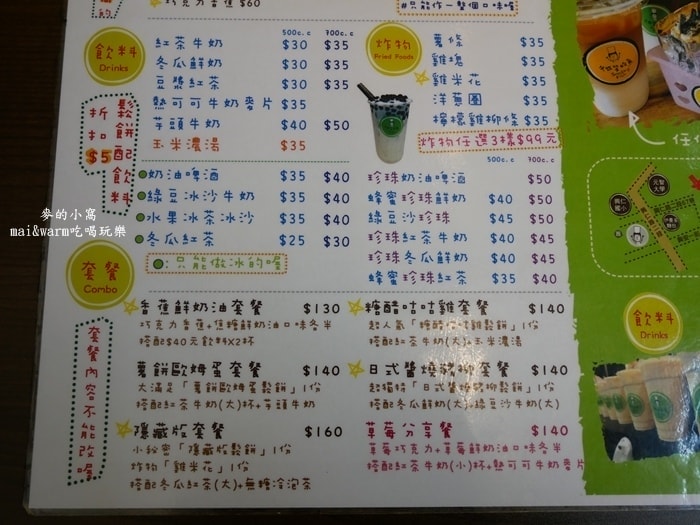 巧克力香蕉 $60
#只能作一整個口味喔
飲料
Drinks
500c.c 700c.c
紅茶牛奶 $30 $35
冬瓜鮮奶 $30 $35
豆漿紅茶 $30 $35
熱可可牛奶麥片 $35
芋頭牛奶 $40 $50
玉米濃湯 $35
鬆餅配飲料
折扣$5
奶油啤酒 $35 $40
綠豆冰沙牛奶 $35 $40
水果冰茶冰沙 $35 $40
冬瓜紅茶 $25 $30
:只能做冰的喔
炸物
Fried Foods
薯條 $35
雞塊 $35
雞米花 $35
洋蔥圈 $35
檸檬雞柳條 $35
炸物任選3樣$99元
500c.c 700c.c
珍珠奶油啤酒 $50
蜂蜜珍珠鮮奶 $40 $50
綠豆沙珍珠 $45 $50
珍珠紅茶牛奶 $40 $45
珍珠冬瓜鮮奶 $40 $45
蜂蜜珍珠紅茶 $35 $40
麥的小窩
mai&warm吃喝玩樂
套餐
Combo
套餐內容不能改喔
香蕉鮮奶油套餐 $130
巧克力香蕉+焦糖鮮奶油口味各半
搭配$40元飲料X2杯
薯餅歐姆蛋套餐 $140
大滿足「薯餅歐姆蛋鬆餅」1份
搭配紅茶牛奶(大)1杯+芋頭牛奶
隱藏版套餐 $160
小秘密「隱藏版鬆餅」1份
炸物「雞米花」1份
搭配冬瓜紅茶(大)+無糖冷泡茶
糖醋咕咕雞套餐 $140
搭配紅茶牛奶(大)+玉米濃湯
日式醬燒豬柳套餐 $140
超獨特「日式醬燒豬柳鬆餅」1份
搭配冬瓜鮮奶(大)+綠豆沙牛奶(大)
草莓分享餐 $140
草莓巧克力+草莓鮮奶油口味各半
搭配紅茶牛奶(小)1杯+熱可可牛奶麥片
飲料
Drinks